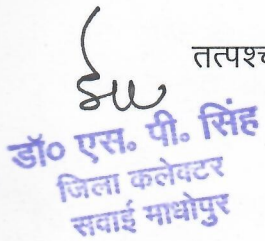 तत्पश्च
डॉ० एस. पी. सिंह
जिला कलेक्टर
सवाई माधोपुर